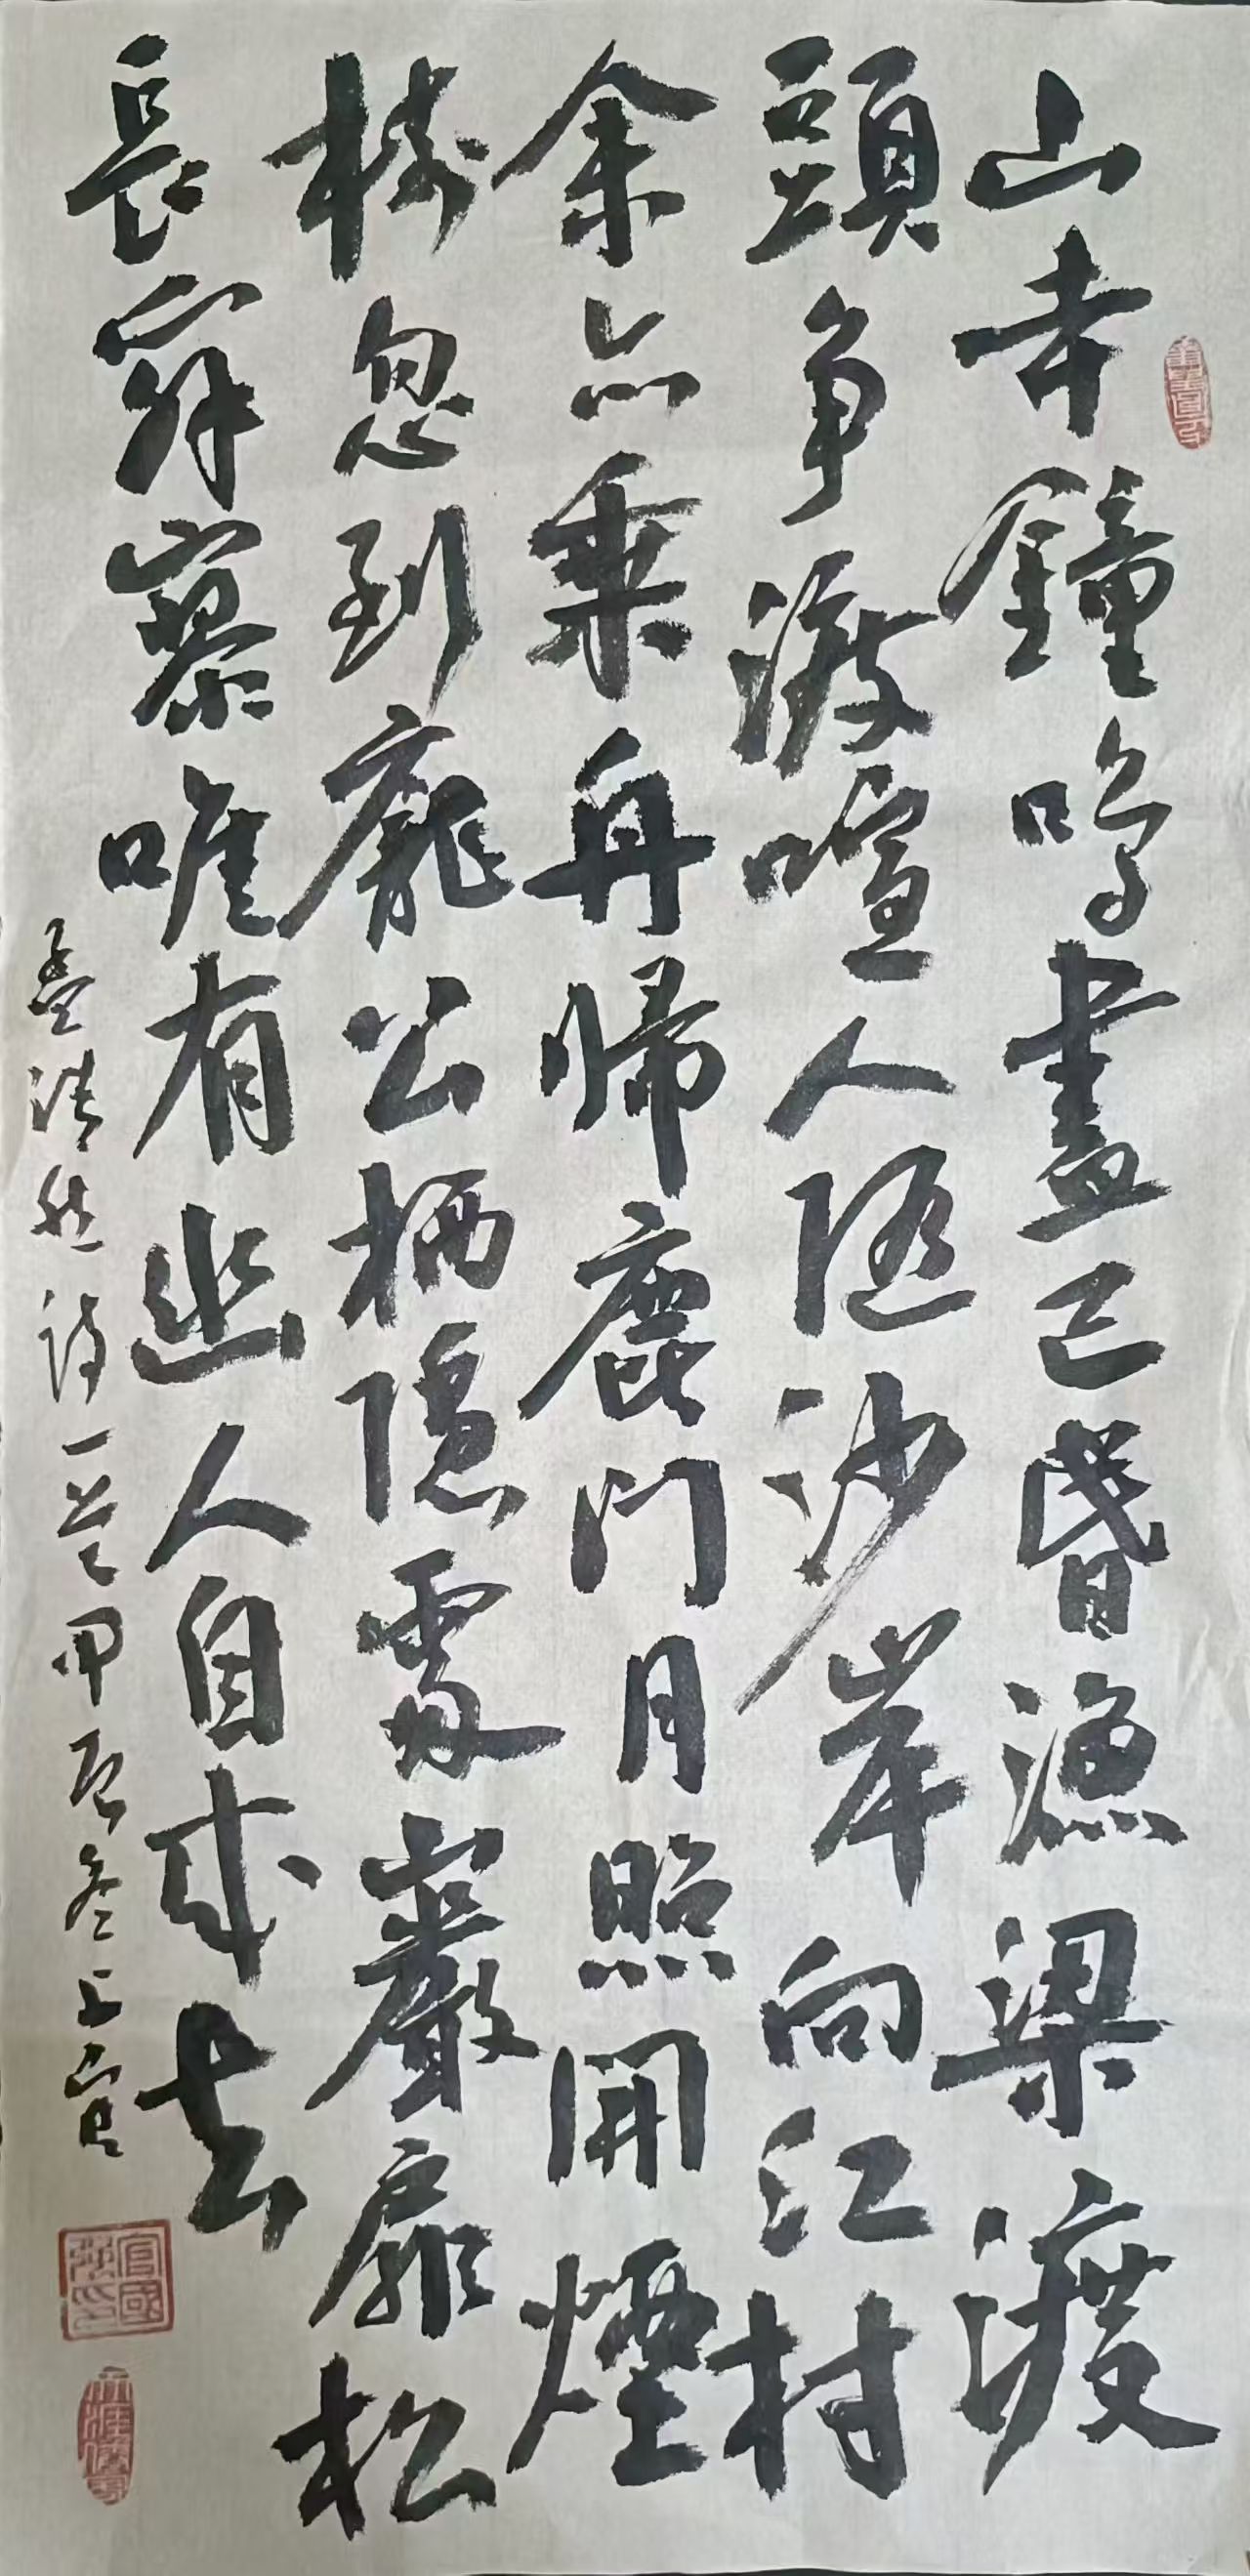 山寺鐘鳴盡已昬漁梁渡
頭争渡喧人随沙岸向江村
余亦乘舟帰鹿門月照開煙
樹忽到龐公栖隱處巖扉松
長寂寥唯有幽人自来去
孟浩然詩一首甲辰冬上官
官國強印